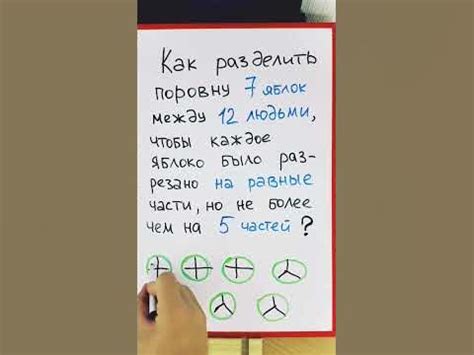 Как разделить
поровну 7 яблок
между 12 людьми,
чтобы каждое
яблоко было раз-
резано на равные
части, но не более
чем на 5 частей?